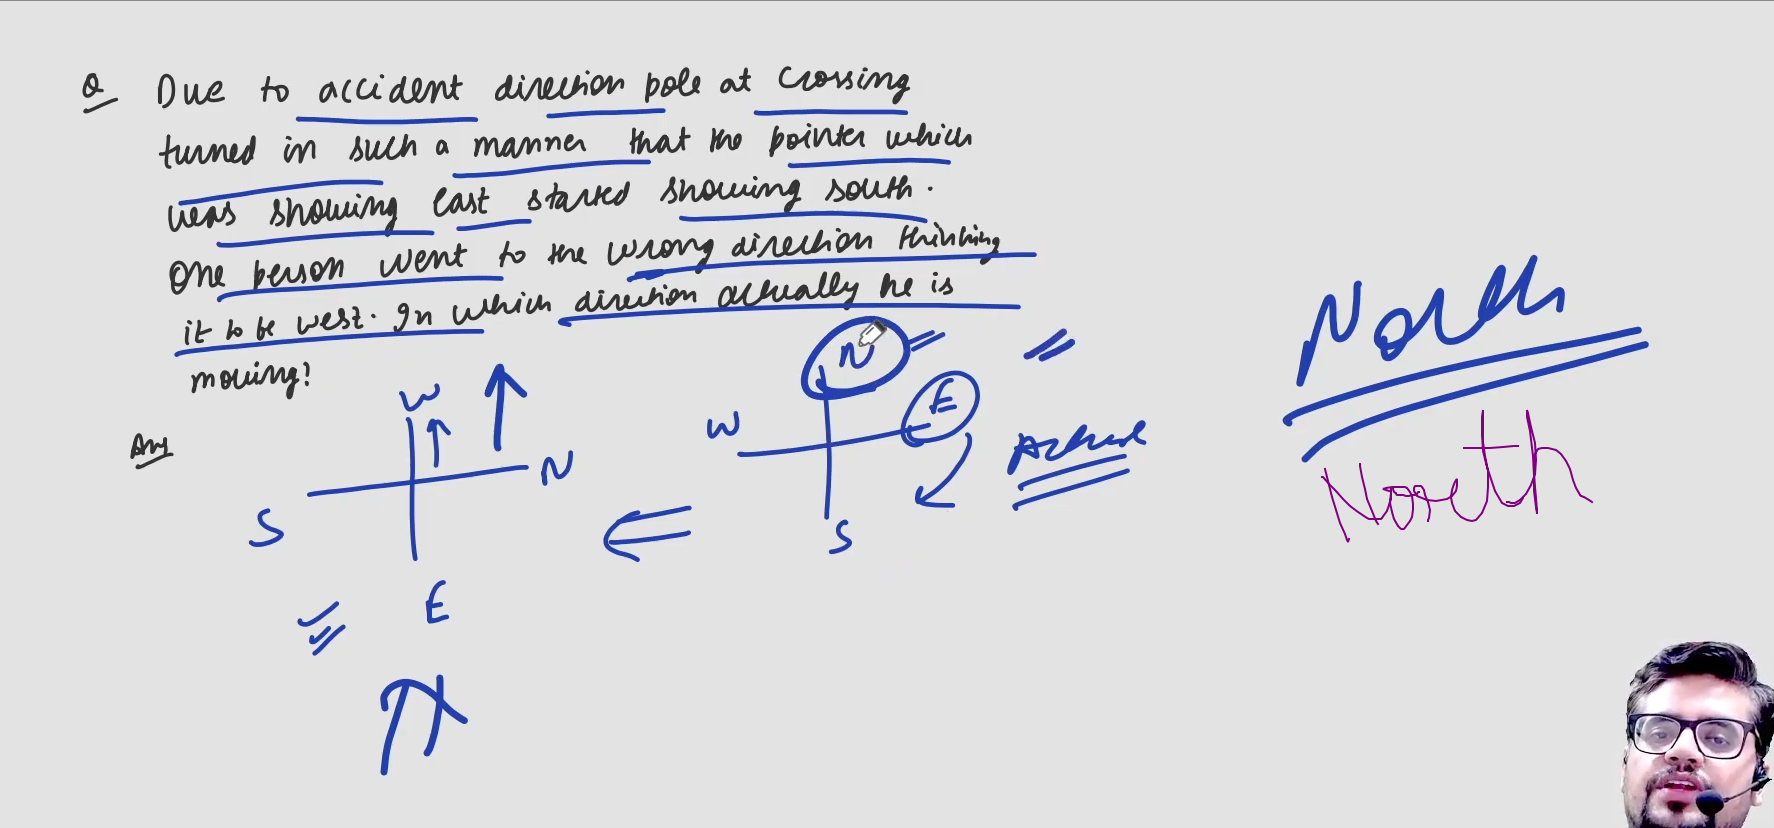 Q Due to accident direction pole at Crossing
turned in such a manner that the pointer which
was showing East started showing south.
One person went to the wrong direction thinking
it to be west. In which direction actually he is
moving?
Ans
W
N
S
E
N
W
E
S
Actual
North
North